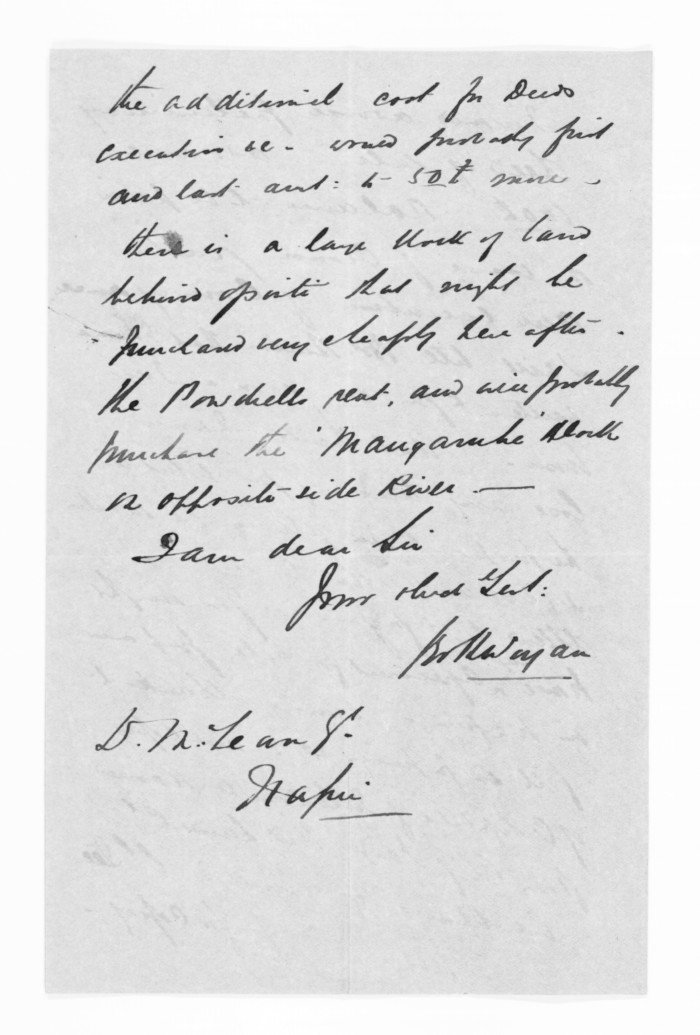 the additional cost for Deeds
execution &c - would probably first
and last amt: to 50£ more -
there is a large block of land
behind opposite that might be
purchased very cheaply here after -
the Powdrells rent, and will probably
purchase the "Mangaruhe" Block
on opposite side River. —
I am dear Sir
Your obed Servt:
D. McLean Esqr
Napier